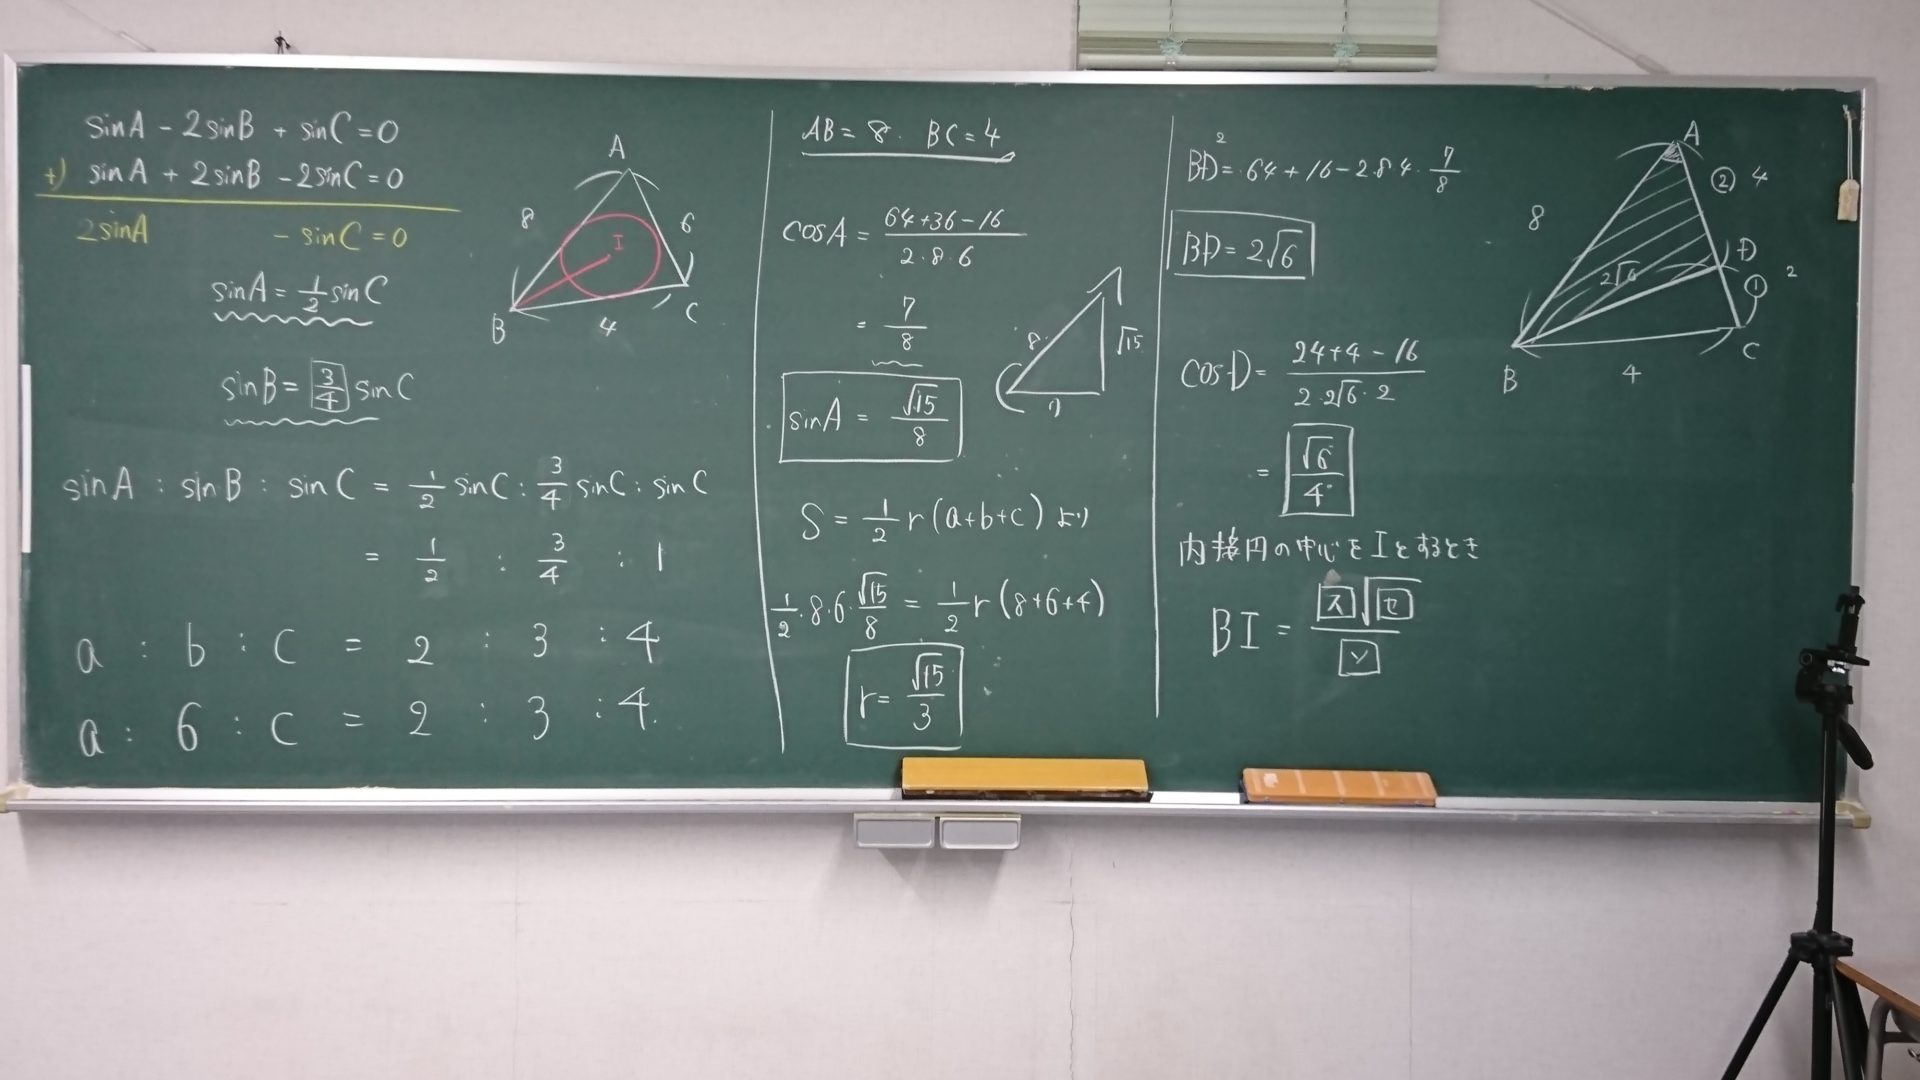 sinA - 2sinB + sinC = 0
+) sinA + 2sinB - 2sinC = 0
2sinA - sinC = 0
sinA = 1/2 sinC
sinB = 3/4 sinC
A
8
6
I
B
4
C
sinA : sinB : sinC = 1/2 sinC : 3/4 sinC : sinC
= 1/2 : 3/4 : 1
a : b : c = 2 : 3 : 4
a : 6 : c = 2 : 3 : 4.
AB = 8. BC = 4
cosA = (64+36-16)/(2·8·6)
= 7/8
sinA = √15/8
8
√15
7
S = 1/2 r(a+b+c) より
1/2·8·6·√15/8 = 1/2 r(8+6+4)
r = √15/3
BD² = 64+16-2·8·4·7/8
BD = 2√6
cosD = (24+4-16)/(2·2√6·2)
= √6/4
内接円の中心をIとするとき
BI = ス√セ/ソ
A
② 4
8
D
2√6
① 2
B
4
C